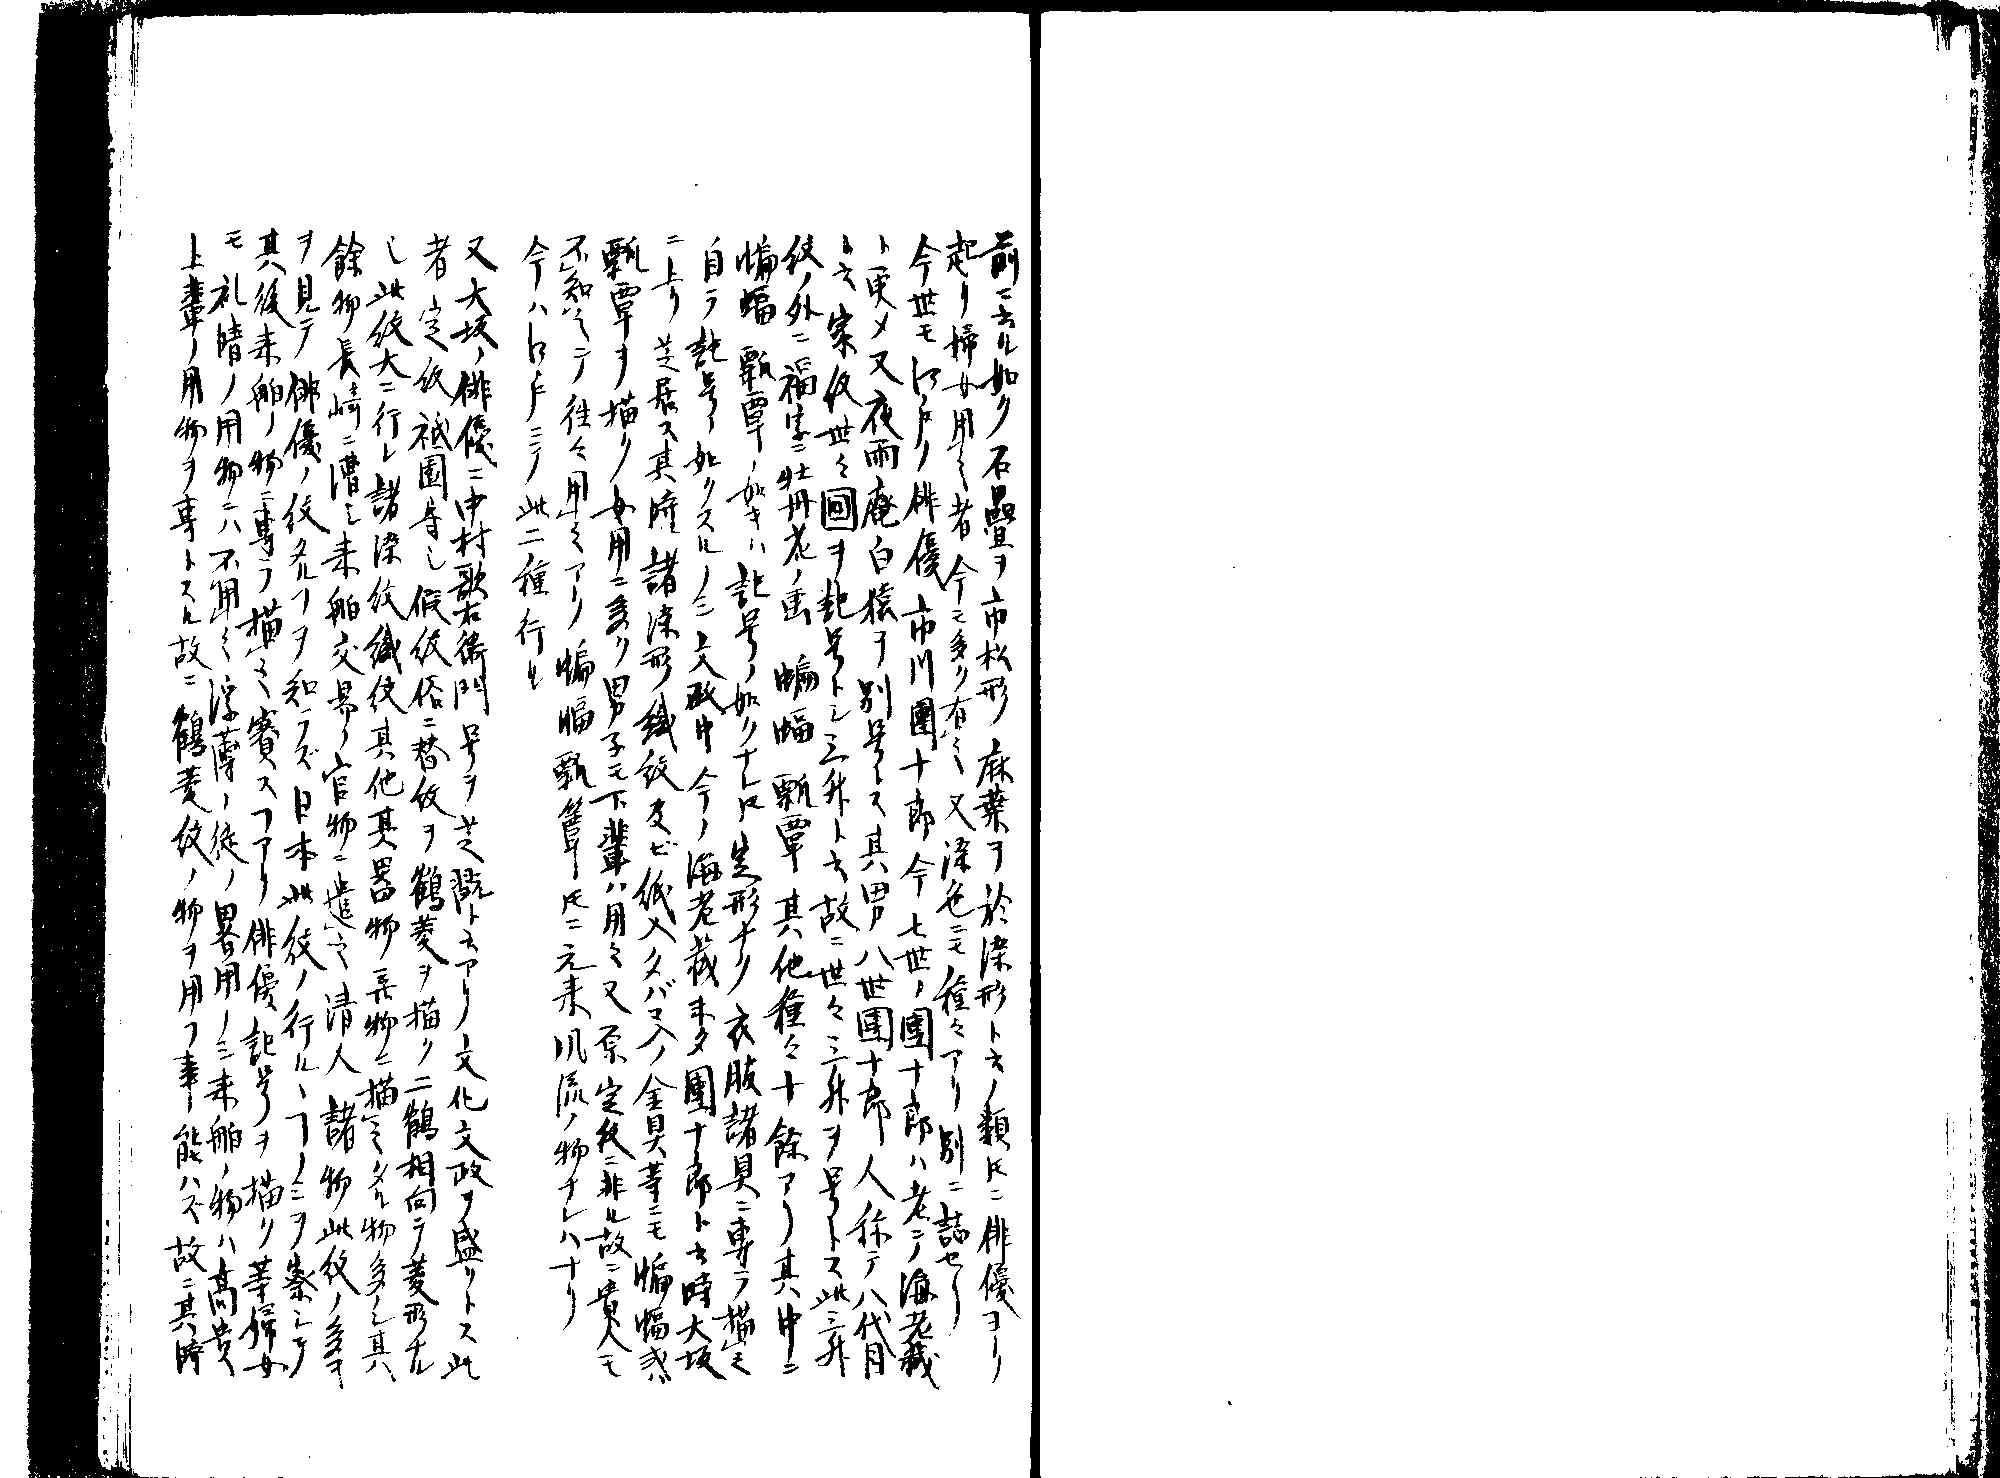 前ニ云ル如ク石畳ヲ市松形 麻葉ヲ於染形ト云ノ類トモニ俳優ヨリ
起リ婦女用之者今モ多ク有之又染色ニモ種々アリ別ニ誌セリ
今世モ江戸ノ俳優市川團十郎今七世ノ團十郎ハ老テ海老蔵
ト更メ又夜雨庵白猿ヲ別号トス其男八世團十郎人称テ八代目
ト云家紋世々回ヲ記号トシ三升ト云故ニ世々三升ヲ号トス此三升
紋ノ外ニ福字ニ牡丹花ノ画 蝙蝠 瓢覃 其他種々十餘アリ其中ニ
蝙蝠 瓢覃ノ如キハ記号ノ如クナレトモ定形ナク衣服諸具ニ専ラ描モ
自ラ記号ノ如クスルノミ文政中今ノ海老蔵未タ團十郎ト云時大坂
ニ上リ芝居ス其時諸染形織紋及ビ紙入タバコ入ノ金具等ニモ蝙蝠或ハ
瓢覃ヲ描ク女用ニ多ク男子モ下輩ハ用之又原定紋ニ非ル故ニ貴人モ
不知之テ往々用之アリ蝙蝠瓢箪トモニ元来風流ノ物ナレハナリ
今ハ江戸ニテ此二種行ル
又大坂ノ俳優ニ中村歌右衛門号ヲ芝翫ト云アリ文化文政ヲ盛リトス此
者定紋祇園守シ仮紋俗ニ替紋ヲ鶴菱ヲ描ク二鶴相向テ菱形ナル
シ此紋大ニ行レ諸染紋織紋其他其器物貢物ニ描之タル物多シ其
餘物長崎ニ漕シ来舶交易ノ官物ニ進之清人諸物此紋ノ多ヲ
ヲ見テ俳優ノ紋タルヿヲ知ラズ日本此紋ノ行ルヽヿノミヲ察シテ
其後来舶ノ物ニ専ラ描之賽スヿアリ俳優記号ヲ描ク等婦女
モ礼晴ノ用物ニハ不用之浮薄ノ徒ノ畧用ノミ来舶ノ物ハ高貴
上輩ノ用物ヲ専トスル故ニ鶴菱紋ノ物ヲ用フ事能ハズ故ニ其時